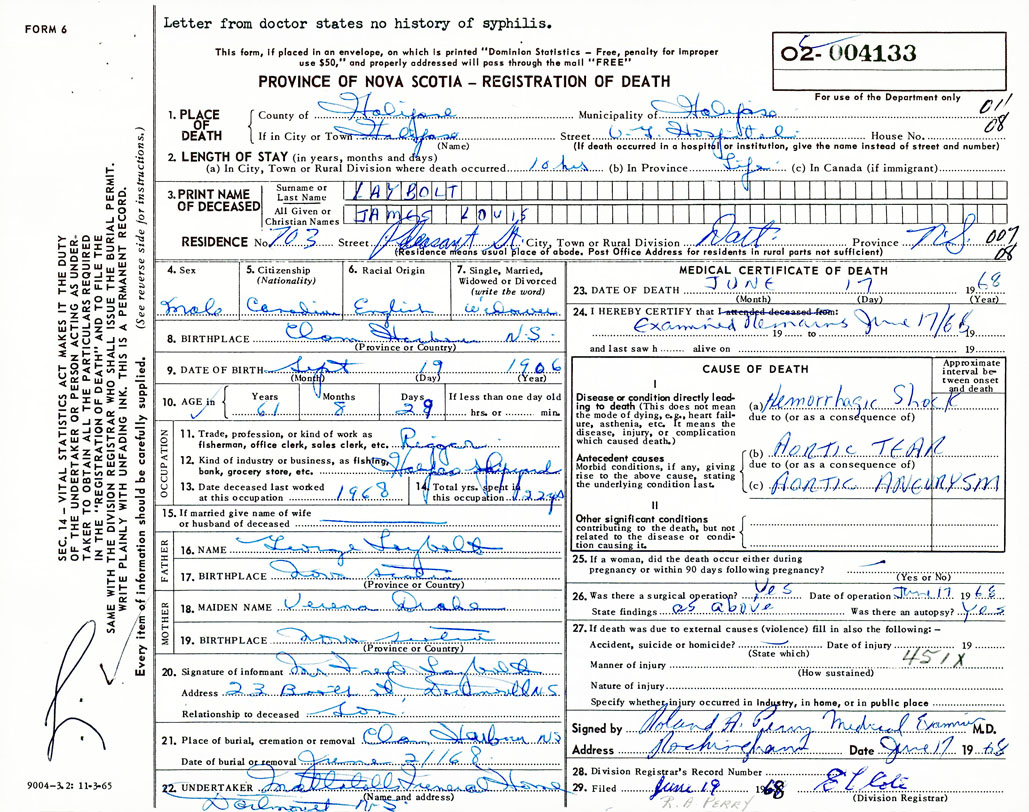 FORM 6
Letter from doctor states no history of syphilis.
This form, if placed in an envelope, on which is printed "Dominion Statistics – Free, penalty for improper
use $50," and properly addressed will pass through the mail "FREE"
02- 004133
For use of the Department only
PROVINCE OF NOVA SCOTIA – REGISTRATION OF DEATH
011
08
1. PLACE OF DEATH
County of Halifax Municipality of Halifax
If in City or Town Halifax Street V.G. Hospital House No.
(Name) (If death occurred in a hospital or institution, give the name instead of street and number)
2. LENGTH OF STAY (in years, months and days)
(a) In City, Town or Rural Division where death occurred 10 hrs (b) In Province Life (c) In Canada (if immigrant)
3. PRINT NAME OF DECEASED
Surname or Last Name LAYBOLT
All Given or Christian Names JAMES LOUIS
RESIDENCE No. 703 Street Pleasant St. City, Town or Rural Division Dart. Province N.S. 007
08
(Residence means usual place of abode. Post Office Address for residents in rural parts not sufficient)
4. Sex Male
5. Citizenship (Nationality) Canadian
6. Racial Origin English
7. Single, Married, Widowed or Divorced (write the word) Widower
8. BIRTHPLACE Clam Harbour N.S.
(Province or Country)
9. DATE OF BIRTH Sept 19 1906
(Month) (Day) (Year)
10. AGE in Years 61 Months 8 Days 29 If less than one day old
hrs. or min.
OCCUPATION
11. Trade, profession, or kind of work as
fisherman, office clerk, sales clerk, etc. Rigger
12. Kind of industry or business, as fishing,
bank, grocery store, etc. Halifax Shipyard
13. Date deceased last worked
at this occupation 1968
14. Total yrs. spent in
this occupation 22 yrs
15. If married give name of wife
or husband of deceased
FATHER
16. NAME George Laybolt
17. BIRTHPLACE Nova Scotia
(Province or Country)
MOTHER
18. MAIDEN NAME Verena Drake
19. BIRTHPLACE Nova Scotia
(Province or Country)
20. Signature of informant Laybolt
Address 23 St Dartmouth N.S.
Relationship to deceased Son
21. Place of burial, cremation or removal Clam Harbour NS
Date of burial or removal June 21/68
22. UNDERTAKER Funeral Home
(Name and address)
Dartmouth N.S.
MEDICAL CERTIFICATE OF DEATH
23. DATE OF DEATH JUNE 17 1968
(Month) (Day) (Year)
24. I HEREBY CERTIFY that I attended deceased from:
Examined Remains June 17/68
19 to 19
and last saw h alive on 19
CAUSE OF DEATH
Approximate interval between onset and death
I
Disease or condition directly leading to death (This does not mean the mode of dying, e.g., heart failure, asthenia, etc. It means the disease, injury, or complication which caused death.)
(a) Hemorrhagic Shock
due to (or as a consequence of)
Antecedent causes
Morbid conditions, if any, giving rise to the above cause, stating the underlying condition last.
(b) AORTIC TEAR
due to (or as a consequence of)
(c) AORTIC ANEURYSM
II
Other significant conditions
contributing to the death, but not related to the disease or condition causing it.
25. If a woman, did the death occur either during
pregnancy or within 90 days following pregnancy?
(Yes or No)
26. Was there a surgical operation? Yes Date of operation June 17 1968
State findings as above Was there an autopsy? Yes
27. If death was due to external causes (violence) fill in also the following: –
Accident, suicide or homicide? Date of injury 19
(State which)
451X
Manner of injury
(How sustained)
Nature of injury
Specify whether injury occurred in industry, in home, or in public place
Signed by Roland A. Perry Medical Examiner M.D.
Address Rockingham Date June 17 1968
28. Division Registrar's Record Number
29. Filed June 19 1968
(Division Registrar)
R.A. PERRY
SEC. 14 – VITAL STATISTICS ACT MAKES IT THE DUTY
OF THE UNDERTAKER OR PERSON ACTING AS UNDER-
TAKER TO OBTAIN ALL THE PARTICULARS REQUIRED
IN THE "REGISTRATION OF DEATH" AND TO FILE THE
SAME WITH THE DIVISION REGISTRAR WHO SHALL ISSUE THE BURIAL PERMIT.
WRITE PLAINLY WITH UNFADING INK. THIS IS A PERMANENT RECORD.
Every item of information should be carefully supplied. (See reverse side for instructions.)
9004-3.2: 11-3-65